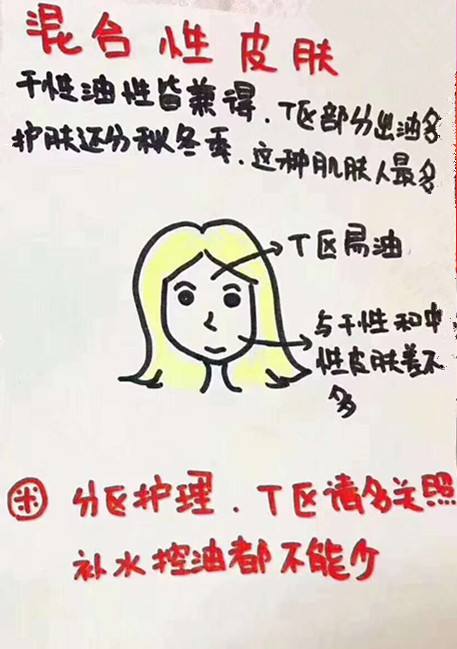 混合性皮肤
干性油性皆兼得，T区部分出油多
护肤还分秋冬季，这种肌肤人最多
T区易油
与干性和中
性皮肤差不
多
※ 分区护理，T区请多关照
补水控油都不能少